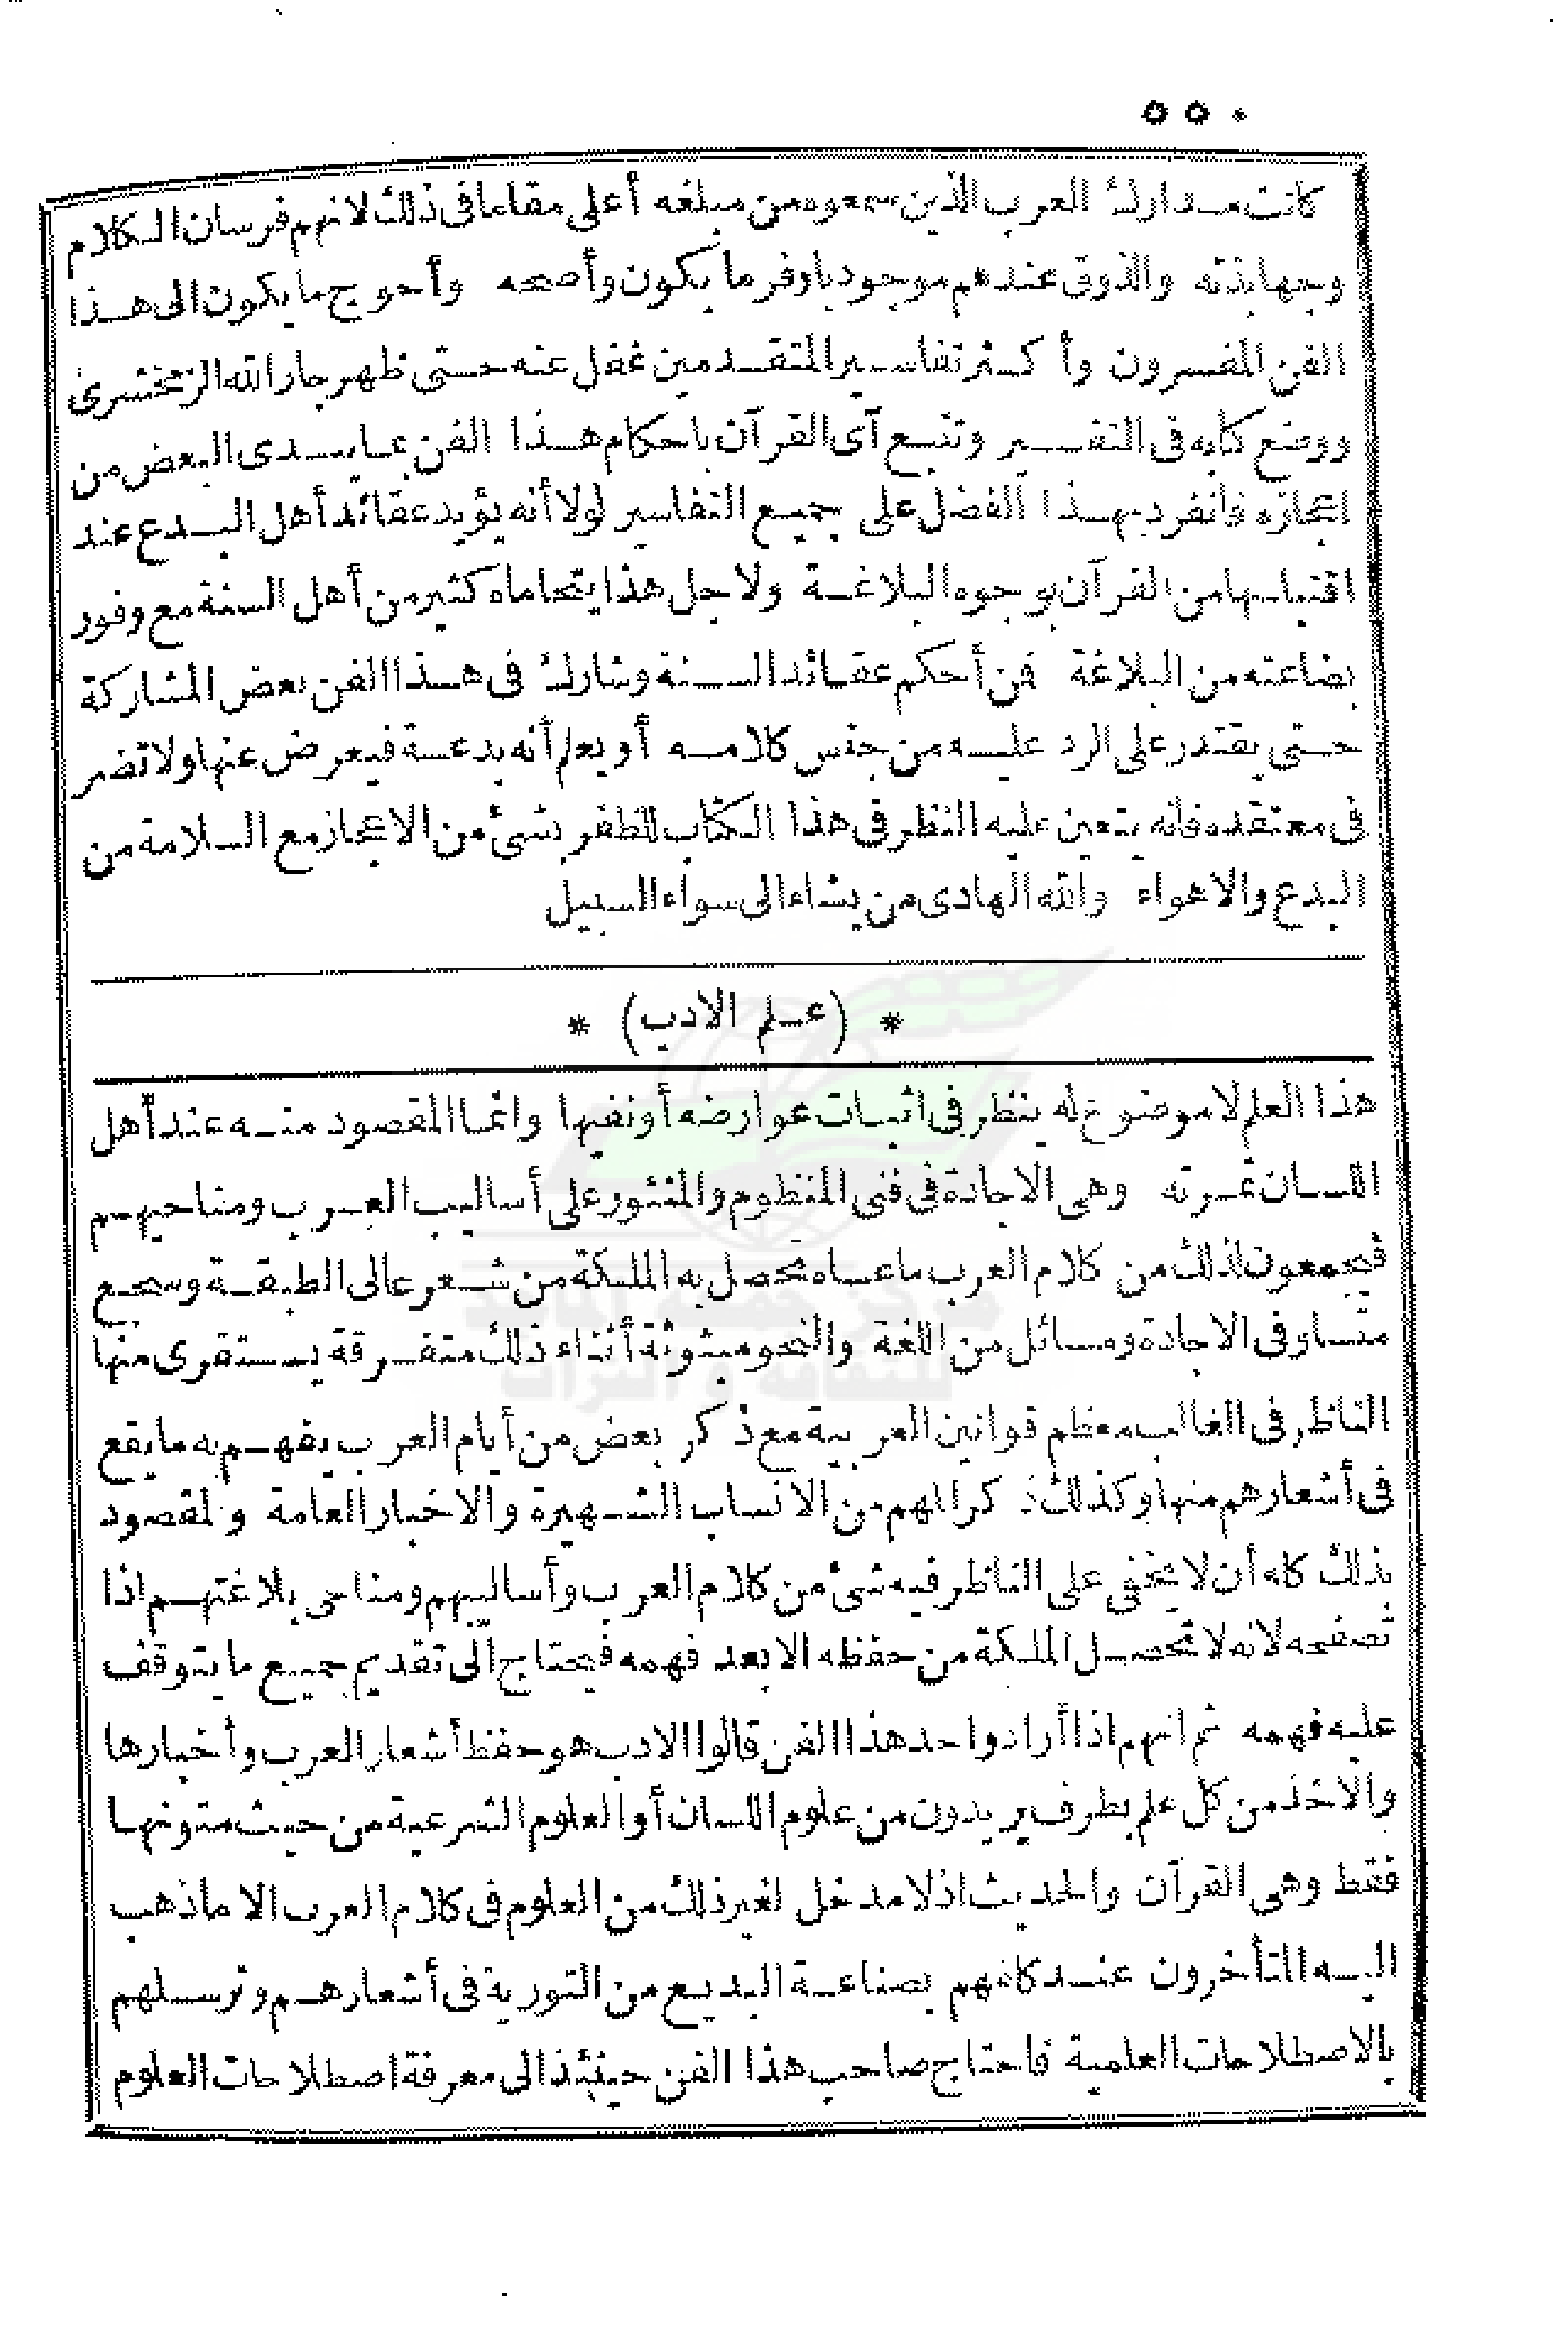 ٥٥٠
كانت مدارك العرب الذين سمعوه من مبلغه أعلى مقاما فى ذلك لانهم فرسان الكلام
وجهابذته والذوق عندهم موجود باوفر ما يكون وأصحه وأحوج ما يكون الى هذا
الفن المفسرون وأكثر تفاسير المتقدمين غفل عنه حتى ظهر جار الله الزمخشرى
ووضع كتابه فى التفسير وتتبع آى القرآن باحكام هذا الفن بما يبدى البعض من
اعجازه فانفرد بهذا الفضل على جميع التفاسير لولا أنه يؤيد عقائد أهل البدع عند
اقتباسها من القرآن بوجوه البلاغة ولاجل هذا يتحاماه كثير من أهل السنة مع وفور
بضاعته من البلاغة فمن أحكم عقائد السنة وشارك فى هذا الفن بعض المشاركة
حتى يقتدر على الرد عليه من جنس كلامه أو يعلم أنه بدعة فيعرض عنها ولا تضر
فى معتقده فانه يتعين عليه النظر فى هذا الكتاب للظفر بشئ من الاعجاز مع السلامة من
البدع والاهواء والله الهادى من يشاء الى سواء السبيل
* (علم الادب) *
هذا العلم لا موضوع له ينظر فى اثبات عوارضه أو نفيها وانما المقصود منه عند أهل
اللسان ثمرته وهى الاجادة فى فنى المنظوم والمنثور على أساليب العرب ومناحيهم
فيجمعون لذلك من كلام العرب ما عساه تحصل به الملكة من شعر عالى الطبقة وسجع
متساو فى الاجادة ومسائل من اللغة والنحو مبثوثة أثناء ذلك متفرقة يستقرى منها
الناظر فى الغالب معظم قوانين العربية مع ذكر بعض من أيام العرب يفهم به ما يقع
فى أشعارهم منها وكذلك ذكر المهم من الانساب الشهيرة والاخبار العامة والمقصود
بذلك كله أن لا يخفى على الناظر فيه شئ من كلام العرب وأساليبهم ومناحى بلاغتهم اذا
تصفحه لانه لا تحصل الملكة من حفظه الا بعد فهمه فيحتاج الى تقديم جميع ما يتوقف
عليه فهمه ثم انهم اذا أرادوا حد هذا الفن قالوا الادب هو حفظ أشعار العرب وأخبارها
والاخذ من كل علم بطرف يريدون من علوم اللسان أو العلوم الشرعية من حيث متونها
فقط وهى القرآن والحديث اذ لا مدخل لغير ذلك من العلوم فى كلام العرب الا ما ذهب
اليه المتأخرون عند كلفهم بصناعة البديع من التورية فى أشعارهم وترسلهم
بالاصطلاحات العلمية فاحتاج صاحب هذا الفن حينئذ الى معرفة اصطلاحات العلوم